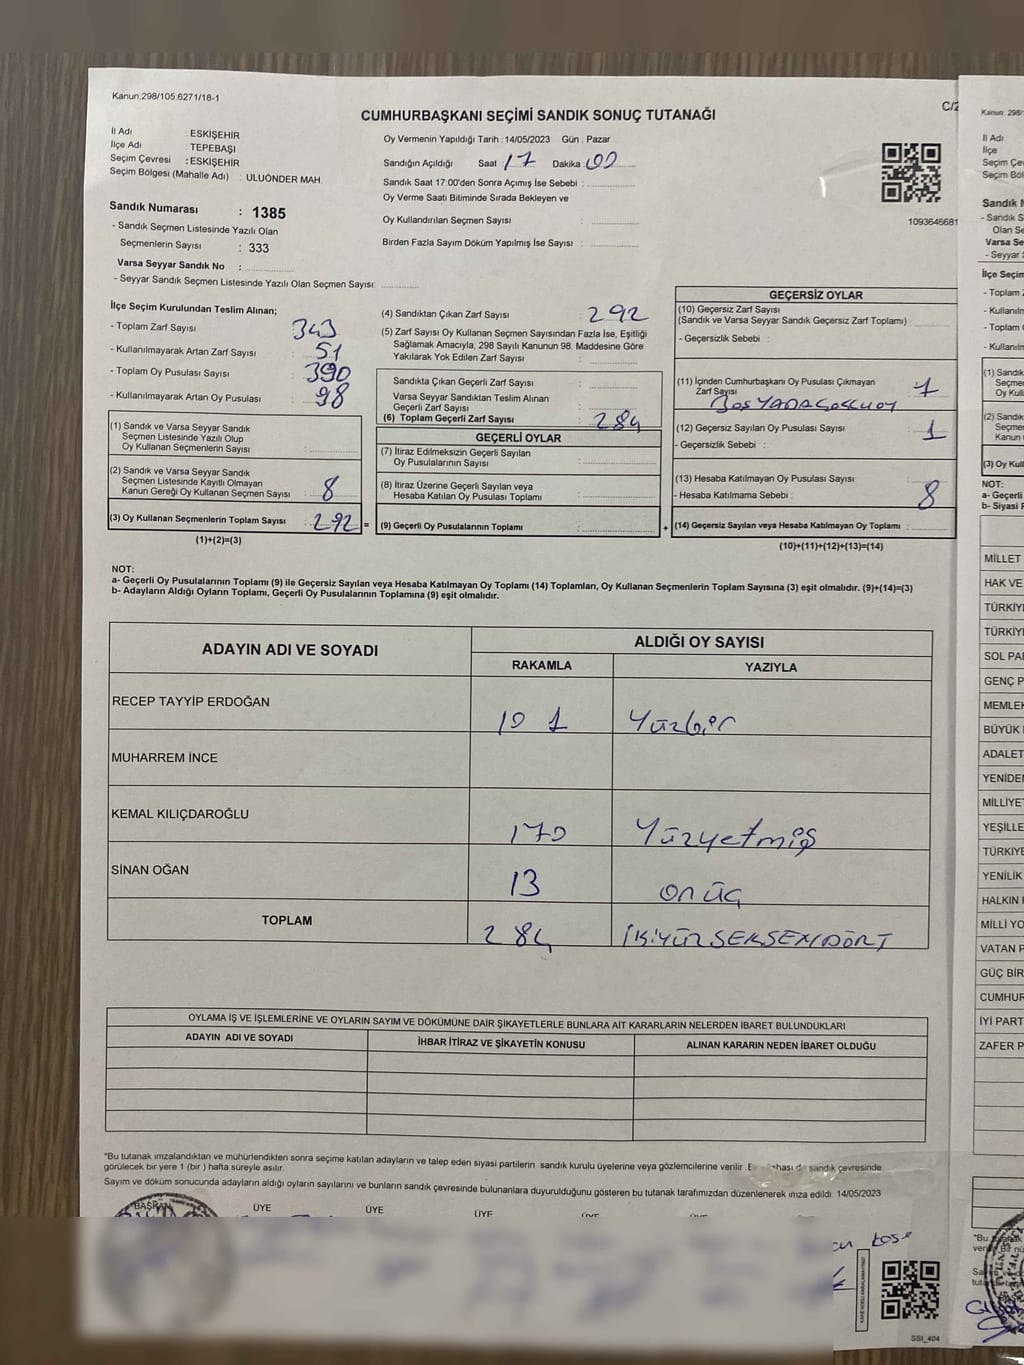 Kanun;298/105,6271/18-1
C/2
CUMHURBAŞKANI SEÇİMİ SANDIK SONUÇ TUTANAĞI
İl Adı : ESKİŞEHİR
İlçe Adı : TEPEBAŞI
Seçim Çevresi : ESKİŞEHİR
Seçim Bölgesi (Mahalle Adı) : ULUÖNDER MAH.
Oy Vermenin Yapıldığı Tarih :14/05/2023 Gün : Pazar
Sandığın Açıldığı Saat 17 Dakika 00
Sandık Saat 17:00'den Sonra Açımış İse Sebebi :
Oy Verme Saati Bitiminde Sırada Bekleyen ve
Oy Kullandırılan Seçmen Sayısı :
Birden Fazla Sayım Döküm Yapılmış İse Sayısı :
1093646681
Sandık Numarası : 1385
- Sandık Seçmen Listesinde Yazılı Olan
Seçmenlerin Sayısı : 333
Varsa Seyyar Sandık No :
- Seyyar Sandık Seçmen Listesinde Yazılı Olan Seçmen Sayısı:
İlçe Seçim Kurulundan Teslim Alınan;
- Toplam Zarf Sayısı : 343
- Kullanılmayarak Artan Zarf Sayısı : 51
- Toplam Oy Pusulası Sayısı : 390
- Kullanılmayarak Artan Oy Pusulası : 98
(1) Sandık ve Varsa Seyyar Sandık
Seçmen Listesinde Yazılı Olup
Oy Kullanan Seçmenlerin Sayısı :
(2) Sandık ve Varsa Seyyar Sandık
Seçmen Listesinde Kayıtlı Olmayan
Kanun Gereği Oy Kullanan Seçmen Sayısı : 8
(3) Oy Kullanan Seçmenlerin Toplam Sayısı : 292 =
(1)+(2)=(3)
(4) Sandıktan Çıkan Zarf Sayısı : 292
(5) Zarf Sayısı Oy Kullanan Seçmen Sayısından Fazla İse, Eşitliği
Sağlamak Amacıyla, 298 Sayılı Kanunun 98. Maddesine Göre
Yakılarak Yok Edilen Zarf Sayısı :
Sandıkta Çıkan Geçerli Zarf Sayısı :
Varsa Seyyar Sandıktan Teslim Alınan
Geçerli Zarf Sayısı :
(6) Toplam Geçerli Zarf Sayısı : 284
GEÇERLİ OYLAR
(7) İtiraz Edilmeksizin Geçerli Sayılan
Oy Pusulalarının Sayısı :
(8) İtiraz Üzerine Geçerli Sayılan veya
Hesaba Katılan Oy Pusulası Toplamı :
(9) Geçerli Oy Pusulalarının Toplamı : +
GEÇERSİZ OYLAR
(10) Geçersiz Zarf Sayısı
(Sandık ve Varsa Seyyar Sandık Geçersiz Zarf Toplamı) :
- Geçersizlik Sebebi :
(11) İçinden Cumhurbaşkanı Oy Pusulası Çıkmayan
Zarf Sayısı
(12) Geçersiz Sayılan Oy Pusulası Sayısı : 1
- Geçersizlik Sebebi :
(13) Hesaba Katılmayan Oy Pusulası Sayısı :
- Hesaba Katılmama Sebebi : 8
(14) Geçersiz Sayılan veya Hesaba Katılmayan Oy Toplamı :
(10)+(11)+(12)+(13)=(14)
NOT:
a- Geçerli Oy Pusulalarının Toplamı (9) ile Geçersiz Sayılan veya Hesaba Katılmayan Oy Toplamı (14) Toplamları, Oy Kullanan Seçmenlerin Toplam Sayısına (3) eşit olmalıdır. (9)+(14)=(3)
b- Adayların Aldığı Oyların Toplamı, Geçerli Oy Pusulalarının Toplamına (9) eşit olmalıdır.
ADAYIN ADI VE SOYADI
ALDIĞI OY SAYISI
RAKAMLA YAZIYLA
RECEP TAYYİP ERDOĞAN 101 Yüzbir
MUHARREM İNCE
KEMAL KILIÇDAROĞLU 170 Yüzyetmiş
SİNAN OĞAN 13 on üç
TOPLAM 284 İKİYÜZ SEKSENDÖRT
OYLAMA İŞ VE İŞLEMLERİNE VE OYLARIN SAYIM VE DÖKÜMÜNE DAİR ŞİKAYETLERLE BUNLARA AİT KARARLARIN NELERDEN İBARET BULUNDUKLARI
ADAYIN ADI VE SOYADI İHBAR İTİRAZ VE ŞİKAYETİN KONUSU ALINAN KARARIN NEDEN İBARET OLDUĞU
*Bu tutanak imzalandıktan ve mühürlendikten sonra seçime katılan adayların ve talep eden siyasi partilerin sandık kurulu üyelerine veya gözlemcilerine verilir. sandık çevresinde
görülecek bir yere 1 (bir ) hafta süreyle asılır.
Sayım ve döküm sonucunda adayların aldığı oyların sayılarını ve bunların sandık çevresinde bulunanlara duyurulduğunu gösteren bu tutanak tarafımızdan düzenlenerek imza edildi. 14/05/2023
BAŞKAN ÜYE ÜYE ÜYE
SSI_404
Kanun; 298/
İl Adı
İlçe
Seçim Çe
Seçim Böl
Sandık N
- Sandık S
Olan Se
Varsa Se
- Seyyar
İlçe Seçim
- Toplam
- Kullanıln
- Toplam
- Kullanıln
(1) Sandık
Seçme
Oy Kull
(2) Sandık
Seçme
Kanun
(3) Oy Kull
NOT:
a- Geçerli
b- Siyasi P
MİLLET
HAK VE
TÜRKİYE
TÜRKİYE
SOL PA
GENÇ P
MEMLEK
BÜYÜK
ADALET
YENİDEN
MİLLİYET
YEŞİLLE
TÜRKİYE
YENİLİK
HALKIN
MİLLİ YO
VATAN P
GÜÇ BİR
CUMHUR
İYİ PART
ZAFER P
*Bu